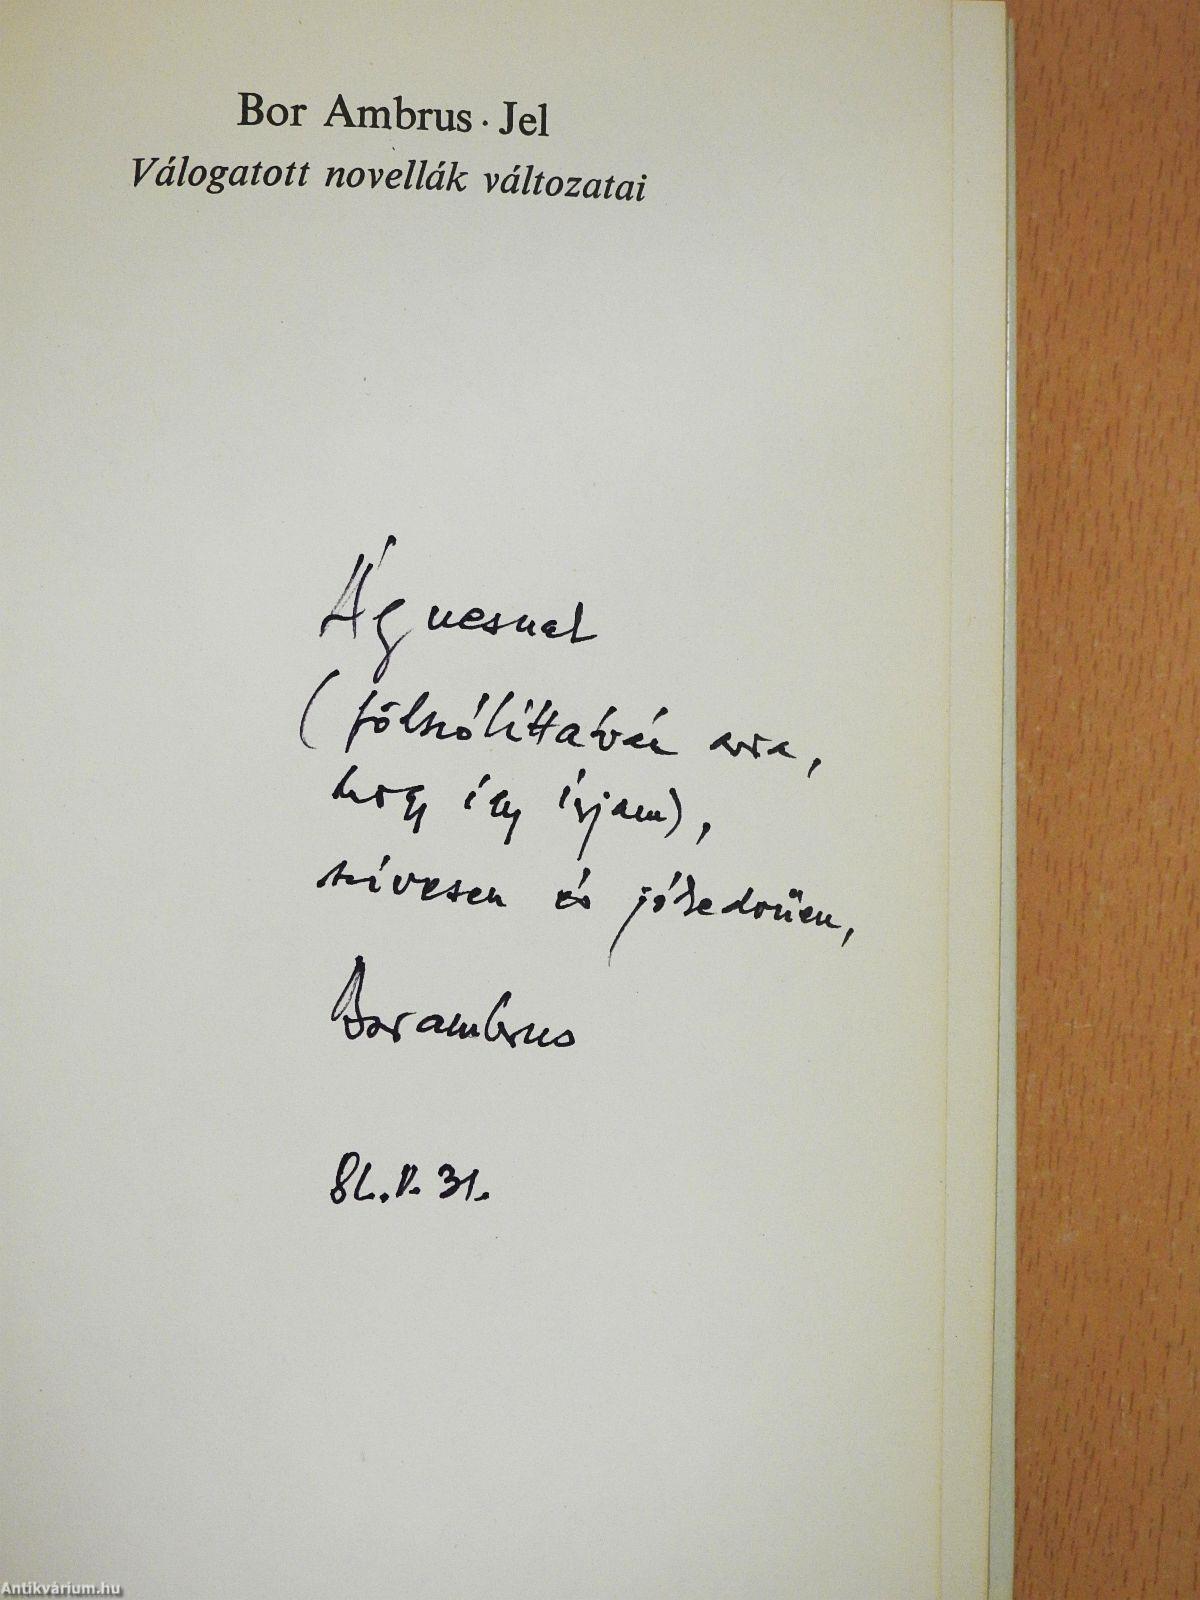 Bor Ambrus · Jel
Válogatott novellák változatai
Ágnesnek
(fölszólíttatván arra,
hogy így írjam),
szívesen és jókedvűen,
Bor Ambrus
82.V.31.
Antikvárium.hu